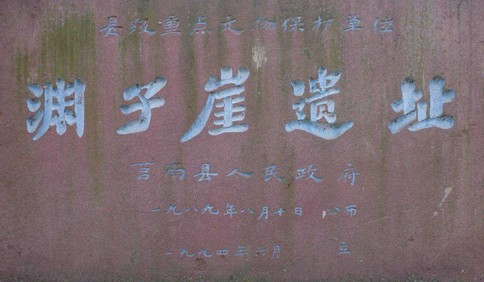 县级重点文物保护单位
渊子崖遗址
莒南县人民政府
一九八九年八月十日 公布
一九九四年六月 立